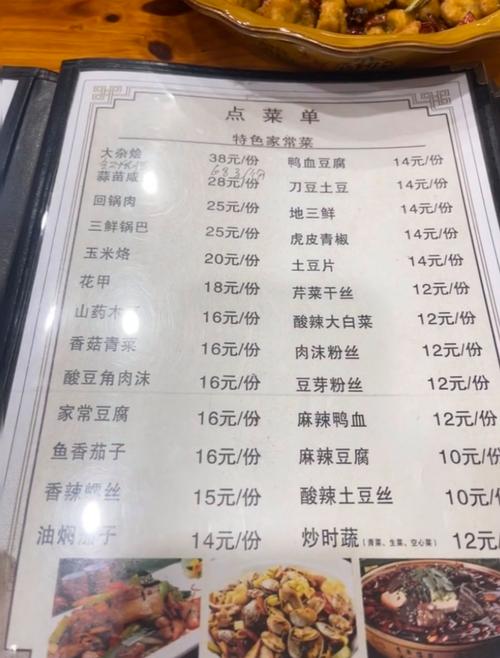 点菜单
特色家常菜
大杂烩 38元/份
蒜苗咸 28元/份
回锅肉 25元/份
三鲜锅巴 25元/份
玉米烙 20元/份
花甲 18元/份
山药木 16元/份
香菇青菜 16元/份
酸豆角肉沫 16元/份
家常豆腐 16元/份
鱼香茄子 16元/份
香辣 丝 15元/份
油焖茄子 14元/份
鸭血豆腐 14元/份
刀豆土豆 14元/份
地三鲜 14元/份
虎皮青椒 14元/份
土豆片 14元/份
芹菜干丝 12元/份
酸辣大白菜 12元/份
肉沫粉丝 12元/份
豆芽粉丝 12元/份
麻辣鸭血 12元/份
麻辣豆腐 10元/份
酸辣土豆丝 10元/
炒时蔬(青菜、生菜、空心菜) 12元/